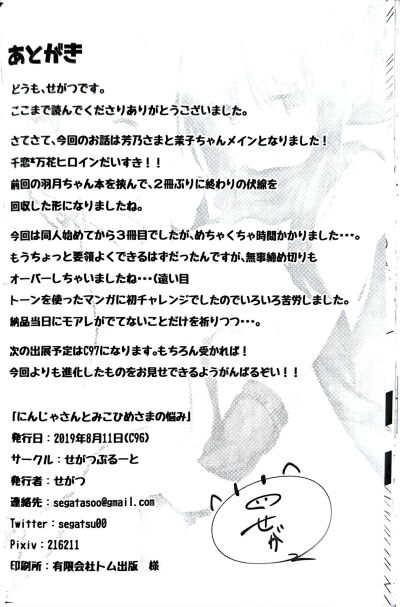 あとがき
どうも、せがつです。
ここまで読んでくださりありがとうございました。
さてさて、今回のお話は芳乃さまと茉子ちゃんメインとなりました！
千恋*万花ヒロインだいすき！！
前回の羽月ちゃん本を挟んで、2冊ぶりに終わりの伏線を
回収した形になりましたね。
今回は同人始めてから3冊目でしたが、めちゃくちゃ時間かかりました・・・。
もうちょっと要領よくできるはずだったんですが、無事締め切りも
オーバーしちゃいましたね・・・(遠い目
トーンを使ったマンガに初チャレンジでしたのでいろいろ苦労しました。
納品当日にモアレがでてないことだけを祈りつつ・・・。
次の出展予定はC97になります。もちろん受かれば！
今回よりも進化したものをお見せできるようがんばるぞい！！
「にんじゃさんとみこひめさまの悩み」
発行日：2019年8月11日(C96)
サークル：せがつぷるーと
発行者：せがつ
連絡先：segatasoo@gmail.com
Twitter：segatsu00
Pixiv：216211
印刷所：有限会社トム出版　様
せがつ